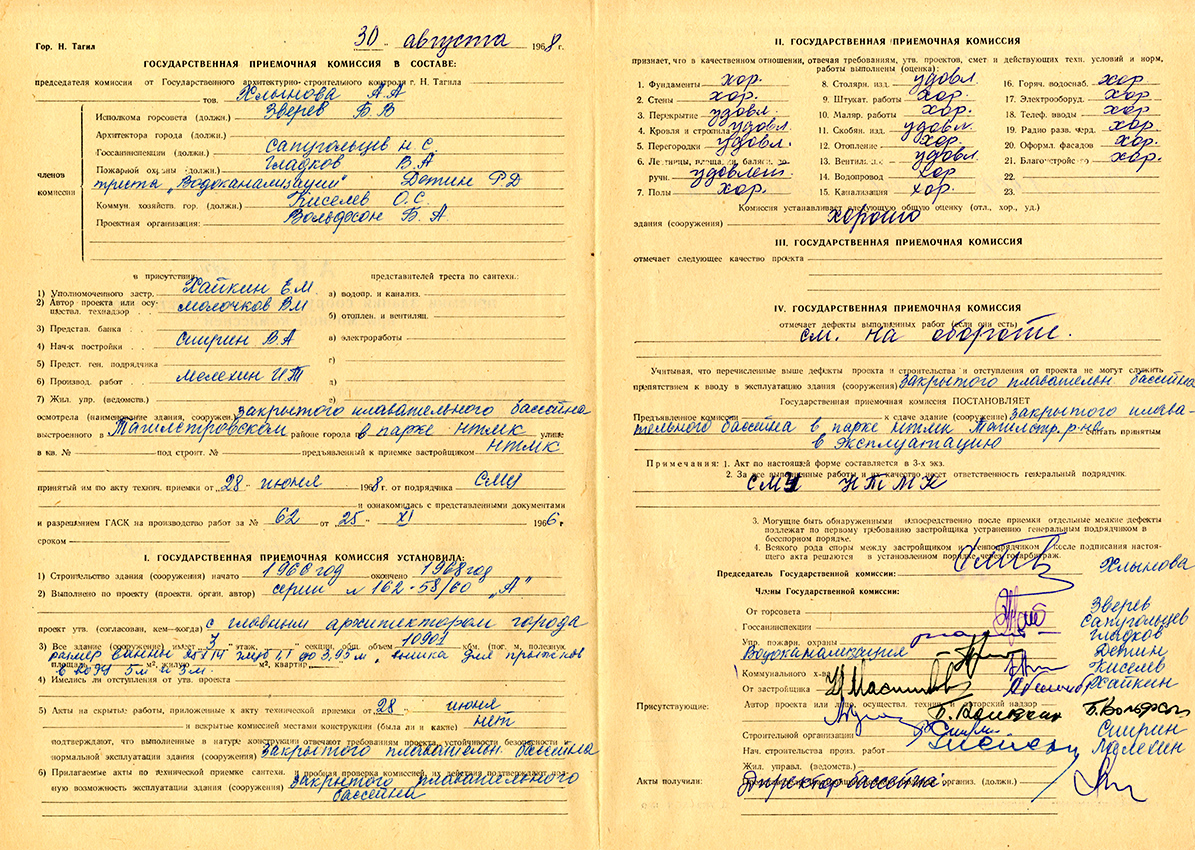 Гор. Н. Тагил 30 августа 1968 г.
ГОСУДАРСТВЕННАЯ ПРИЕМОЧНАЯ КОМИССИЯ В СОСТАВЕ:
председателя комиссии от Государственного архитектурно-строительного контроля г. Н. Тагила
тов. Хлынова А А
членов комиссии
Исполкома горсовета (должн.) Зверев Б В
Архитектора города (должн.)
Госсанинспекции (должн.) Сапугольцев Н С.
Пожарной охраны (должн.) Гладков В. А
треста „Водоканализации" Детин Р Д
Коммун. хозяйств. гор. (должн.) Киселев О. С.
Проектная организация: Вольфсон Б. А
в присутствии: представителей треста по сантехн.:
1) Уполномоченного застр. Хайкин Е. М. а) водопр. и канализ.
2) Автор проекта или осуществл. технадзор Молочков В М б) отоплен. и вентиляц.
3) Представ. банка
4) Нач-к постройки Сширин В. А в) электроработы
5) Предст. ген. подрядчика г)
6) Производ. работ Мелехин И Т д)
7) Жил. упр. (ведомств.) е)
осмотрела (наименование здания, сооружен.) закрытого плавательного бассейна
выстроенного в Тагилстровском районе города в парке НТМК улице
в кв. № под строит. № предъявленный к приемке застройщиком НТМК
принятый им по акту технич. приемки от „28" июня 1968 г. от подрядчика СМУ
и ознакомилась с представленными документами
и разрешением ГАСК на производство работ за № 62 от „25" XI 1966 г
сроком
I. ГОСУДАРСТВЕННАЯ ПРИЕМОЧНАЯ КОМИССИЯ УСТАНОВИЛА:
1) Строительство здания (сооружения) начато 1960 год окончено 1968 год
2) Выполнено по проекту (проектн. орган. автор) серии № 162-58/60 „А"
проект утв. (согласован, кем—когда) с главным архитектором города
3) Все здание (сооружение) имеет 3 этаж., секции, общ. объем 10901 кбм. (пог. м, полезную
размер ванны вышка для прыжков
площадь м², жилую м², квартир
в воду 5м и 3м
4) Имелись ли отступления от утв. проекта
5) Акты на скрытые работы, приложенные к акту технической приемки от 28 июня
и вскрытие комиссией местами конструкции (была ли и какие) нет
подтверждают, что выполненные в натуре конструкции отвечают требованиям проекта, устойчивости, безопасности и
нормальной эксплуатации здания (сооружения) закрытого плавательн. бассейна
6) Прилагаемые акты по технической приемке сантехн. и пробная проверка комиссией, их действия подтверждают полную возможность эксплуатации здания (сооружения) закрытого плавательного
бассейна
II. ГОСУДАРСТВЕННАЯ ПРИЕМОЧНАЯ КОМИССИЯ
признает, что в качественном отношении, отвечая требованиям, утв. проектов, смет и действующих техн. условий и норм,
работы выполнены (оценка):
1. Фундаменты хор. 8. Столярн. изд. удовл. 16. Горяч. водоснаб. хор
2. Стены хор. 9. Штукат. работы хор. 17. Электрооборуд. хор.
3. Перекрытие удовл. 10. Маляр. работы хор. 18. Телеф. вводы хор.
4. Кровля и стропила удовл. 11. Скобян. изд. удовл. 19. Радио разв. черд. хор.
5. Перегородки удовл. 12. Отопление хор. 20. Оформ. фасадов хор.
6. Лестницы, площадки, балкон. поручн. удовлет. 13. Вентиляц. удовл. 21. Благоустройство хор.
14. Водопровод хор 22.
7. Полы хор. 15. Канализация хор. 23.
Комиссия устанавливает следующую общую оценку (отл., хор., уд.)
здания (сооружения) хорошо
III. ГОСУДАРСТВЕННАЯ ПРИЕМОЧНАЯ КОМИССИЯ
отмечает следующее качество проекта
IV. ГОСУДАРСТВЕННАЯ ПРИЕМОЧНАЯ КОМИССИЯ
отмечает дефекты выполненных работ (если они есть)
см. на обороте.
Учитывая, что перечисленные выше дефекты проекта и строительства и отступления от проекта не могут служить
препятствием к вводу в эксплуатацию здания (сооружения) закрытого плавательн бассейна
Государственная приемочная комиссия ПОСТАНОВЛЯЕТ
Предъявленное комиссии к сдаче здание (сооружение) закрытого плава-
тельного бассейна в парке НТМК Тагилстр. р-на считать принятым
в эксплуатацию
Примечания: 1. Акт по настоящей форме составляется в 3-х экз.
2. За все выполненные работы и их качество несет ответственность генеральный подрядчик.
СМУ НТМК
3. Могущие быть обнаруженными непосредственно после приемки отдельные мелкие дефекты
подлежат по первому требованию застройщика устранению генеральным подрядчиком в
бесспорном порядке.
4. Всякого рода споры между застройщиком и генподрядчиком после подписания настоящего акта решаются в установленном порядке через госарбитраж.
Председатель Государственной комиссии: Хлынова
Члены Государственной комиссии:
От горсовета Зверев
Госсанинспекции Сапугольцев
Упр. пожарн. охраны Гладков
Водоканализация Детин
Коммунального х-ва Киселев
От застройщика Хайкин
Присутствующие: Автор проекта или лицо, осуществл. технич. и авторский надзор Б. Вольфсон
Строительной организации Сширин
Нач. строительства произ. работ Мелехин
Жил. управл. (ведомств.)
Акты получили: Директор бассейна организ. (должн.)